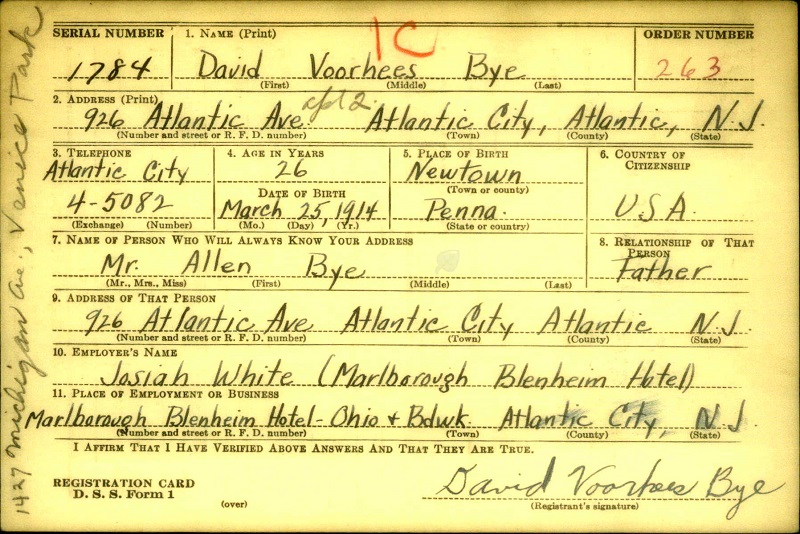 1C
SERIAL NUMBER 1. NAME (Print) ORDER NUMBER
1784 David Voorhees Bye 263
(First) (Middle) (Last)
2. ADDRESS (Print) apt 2.
926 Atlantic Ave. Atlantic City, Atlantic, N.J.
(Number and street or R. F. D. number) (Town) (County) (State)
3. TELEPHONE 4. AGE IN YEARS 5. PLACE OF BIRTH 6. COUNTRY OF
CITIZENSHIP
Atlantic City 26 Newtown
DATE OF BIRTH (Town or county)
4-5082 March 25, 1914 Penna. U.S.A.
(Exchange) (Number) (Mo.) (Day) (Yr.) (State or country)
7. NAME OF PERSON WHO WILL ALWAYS KNOW YOUR ADDRESS 8. RELATIONSHIP OF THAT
PERSON
Mr. Allen Bye Father
(Mr., Mrs., Miss) (First) (Middle) (Last)
9. ADDRESS OF THAT PERSON
926 Atlantic Ave Atlantic City Atlantic N.J.
(Number and street or R. F. D. number) (Town) (County) (State)
10. EMPLOYER'S NAME
Josiah White (Marlborough Blenheim Hotel)
11. PLACE OF EMPLOYMENT OR BUSINESS
Marlborough Blenheim Hotel - Ohio + Bdwk. Atlantic City, N.J.
(Number and street or R. F. D. number) (Town) (County) (State)
I AFFIRM THAT I HAVE VERIFIED ABOVE ANSWERS AND THAT THEY ARE TRUE.
REGISTRATION CARD
D. S. S. Form 1
(over)
David Voorhees Bye
(Registrant's signature)
1427 Michigan Ave., Venice Park